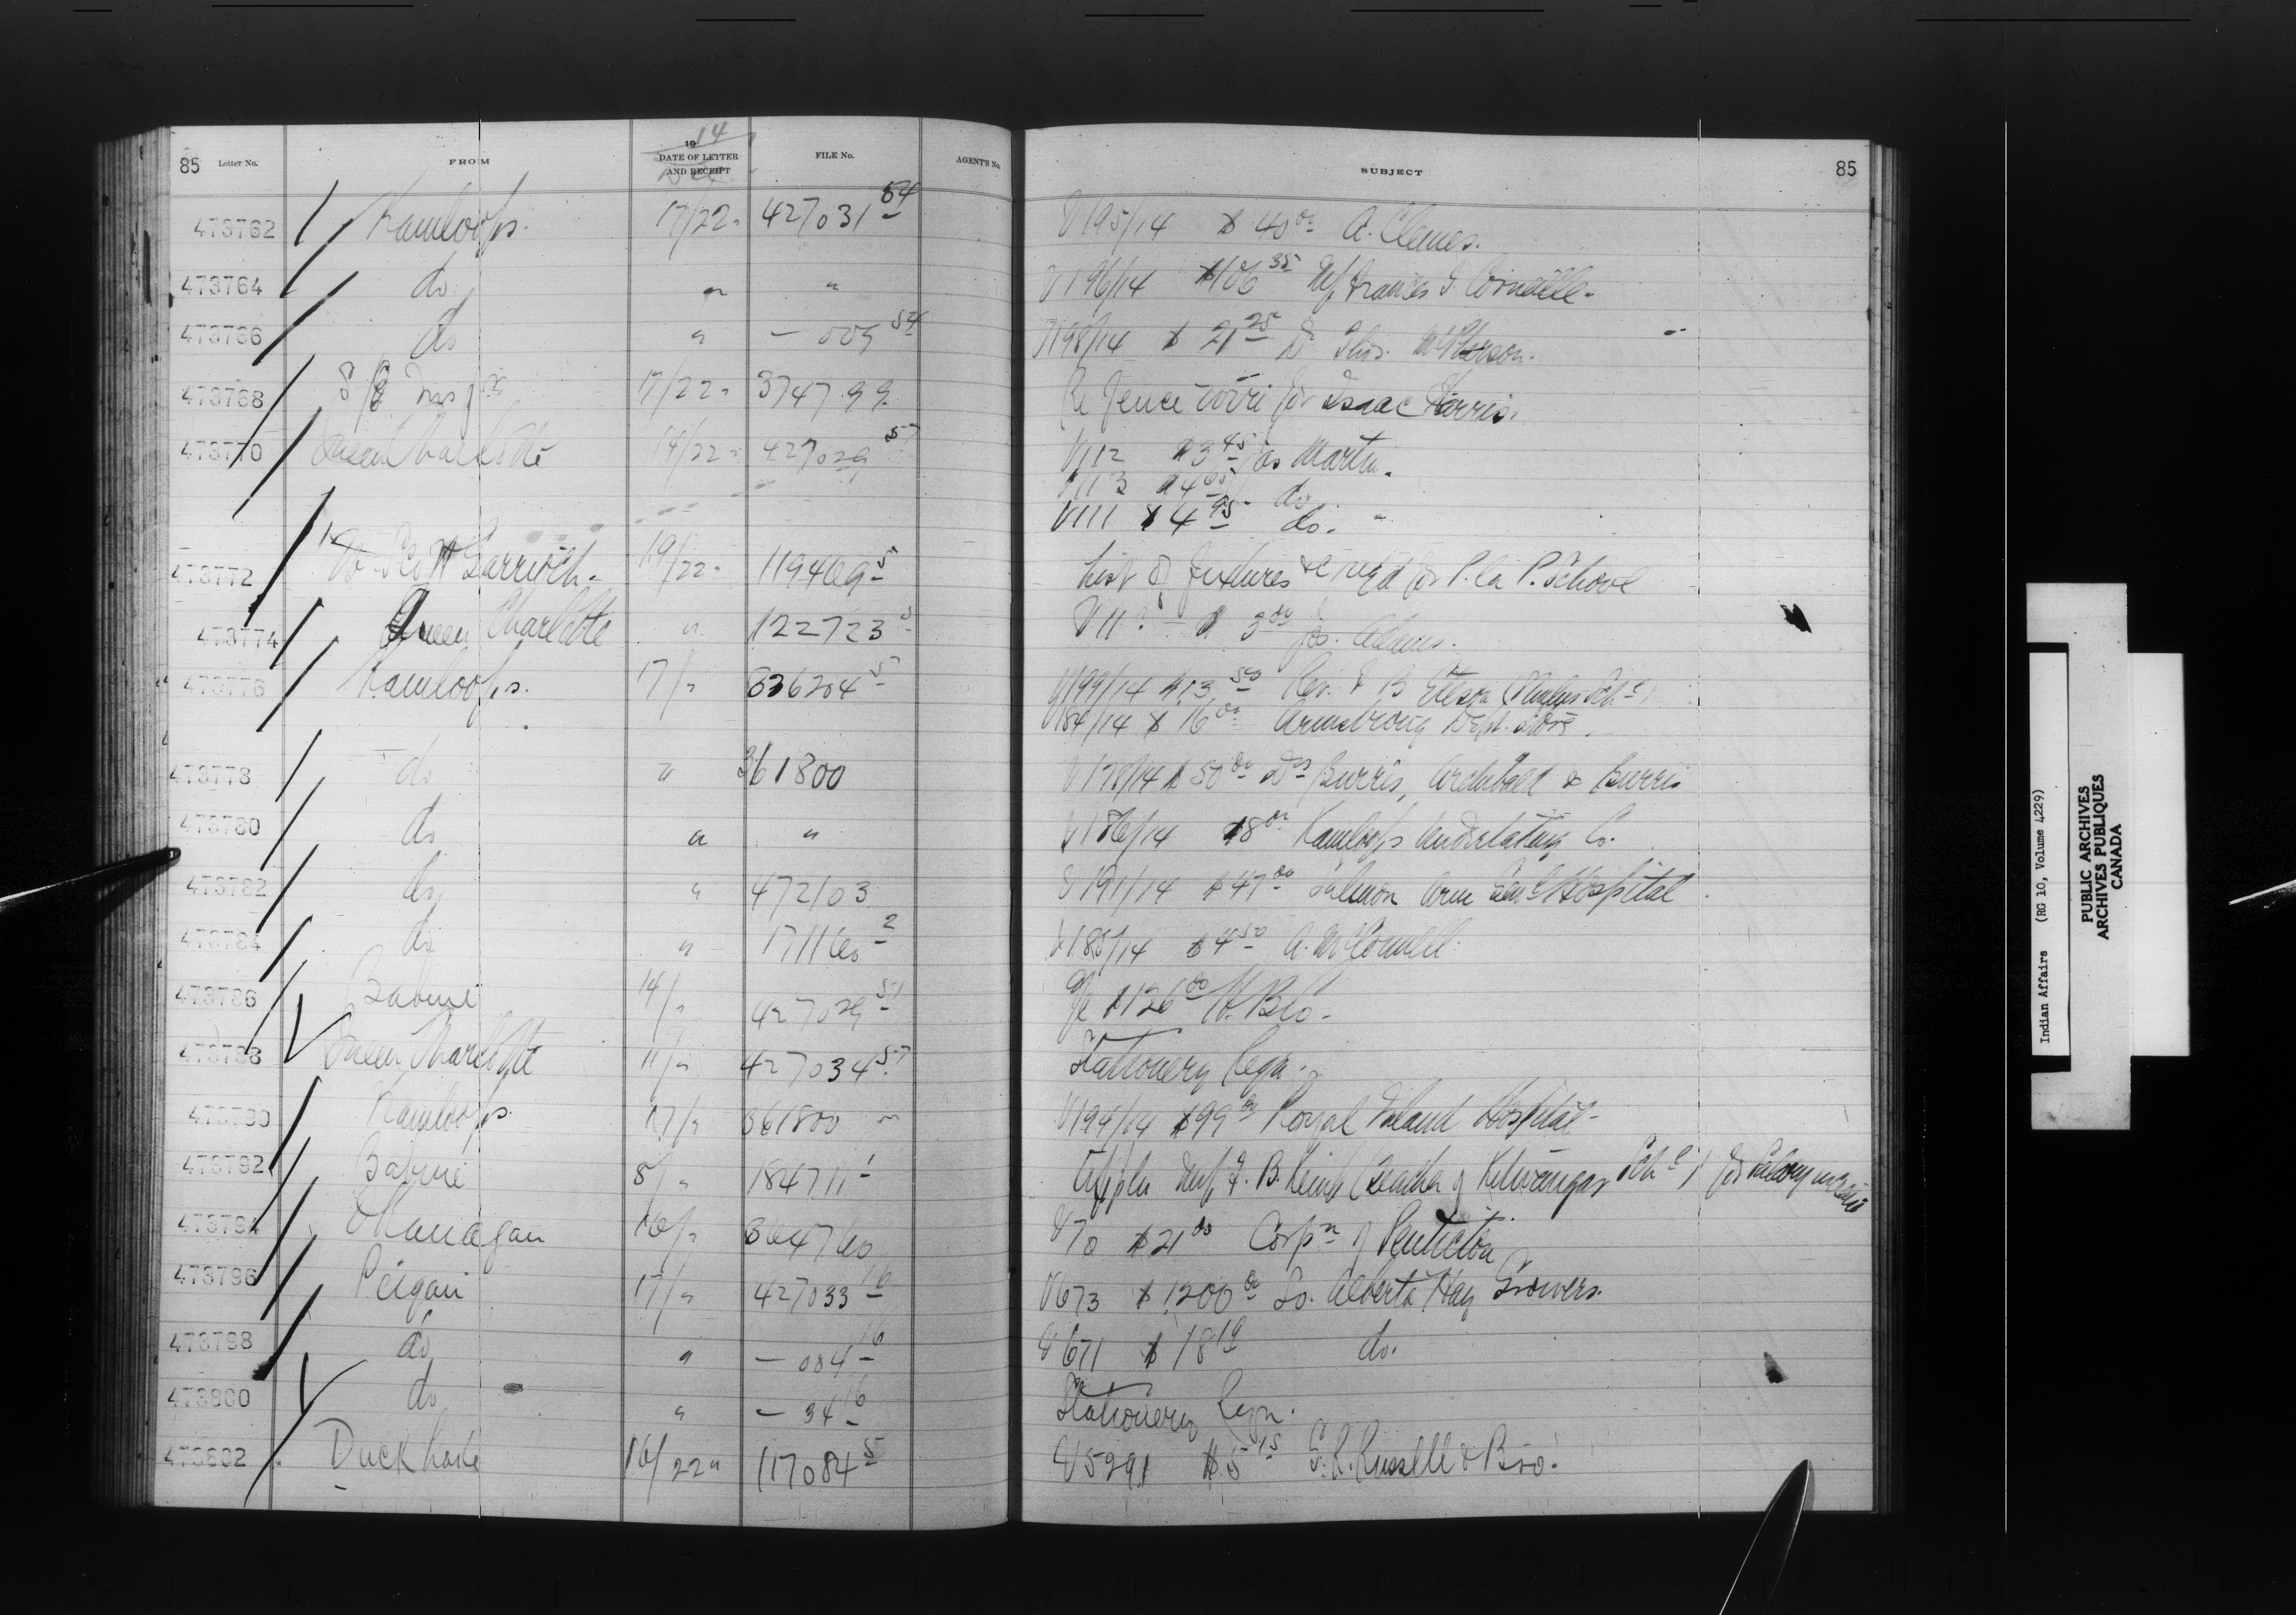 85 Letter No. FROM 1914 DATE OF LETTER AND RECEIPT Dec FILE No. AGENT'S No. SUBJECT 85
473762 Kamloops. 17/22 427031 54 V195/14 $40 00 A. Clemes.
473764 do " " V196/14 $106 35 Frances
473766 do " — 54 V198/14 $21 25 Dr Thos. McPherson.
473768 17/22 374799 Re Fence wire for Isaac Harris.
473770 Queen Charlotte 14/22 427029 57 V112 $3 45 Jas Martin.
V113 $4 do
V111 $4 95 do.
473772 19/22 119469-5 List of fixtures &c reqd for P. la P. School
473774 Queen Charlotte " 122723 V11 $3 00
473776 Kamloops. 17/" 336204 5 V199/14 $13 50 Rev.
V184/14 $16 00 Armstrong Dept. Store.
473778 do " 361800 V178/14 $50 00 Drs Burris, Archibald & Burris
473780 do " " V186/14 $8 00 Kamloops Undertaking Co.
473782 do " 472103 V191/14 $47 00 Salmon Arm Genl Hospital
473784 do " 171160 2 V185/14 $4 50 A. McConnell.
473786 Babine 14/" 427029 51 $126 00 H. B. Co.
473788 Queen Charlotte 11/" 427034 57 Stationery Reqn.
473790 Kamloops. 17/" 361800 V194/14 $99 00 Royal Inland Hospital
473792 Babine 8/" 184711-1 (Teacher of Kitwangar Schl) for salary
473794 Okanagan 16/" 364760 V70 $21 00 Corpn of Penticton
473796 Peigan 17/" 427033 16 V673 $1200 00 So. Alberta Hay Growers.
473798 do " — 034 16 V671 $18 19 do.
473800 do " — 34 16 Stationery Reqn.
473802 Duck Lake 16/22 " 117084 5 V5291 $5 15 Russell & Bro.
Indian Affairs (RG 10, Volume 4229)
PUBLIC ARCHIVES
ARCHIVES PUBLIQUES
CANADA